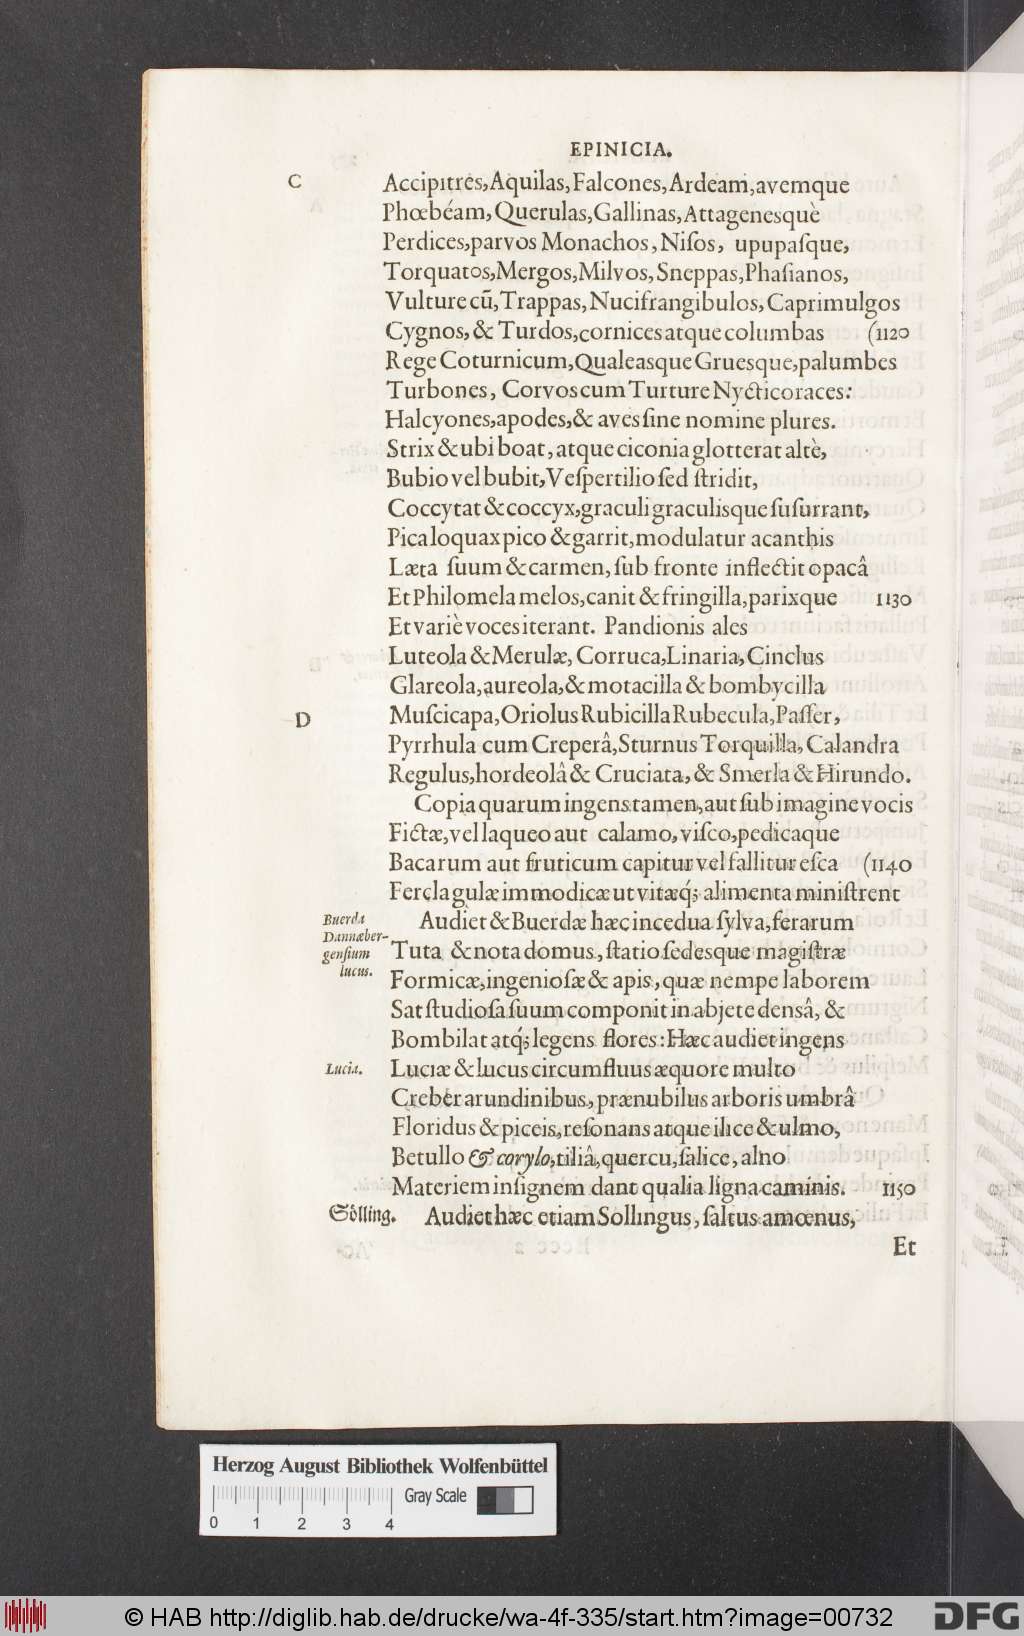 EPINICIA.
C Accipitres, Aquilas, Falcones, Ardeam, avemque
Phœbéam, Querulas, Gallinas, Attagenesquè
Perdices, parvos Monachos, Niſos, upupaſque,
Torquatos, Mergos, Milvos, Sneppas, Phaſianos,
Vulture cū, Trappas, Nucifrangibulos, Caprimulgos
Cygnos, & Turdos, cornices atque columbas (1120
Rege Coturnicum, Qualeasque Gruesque, palumbes
Turbones, Corvos cum Turture Nycticoraces:
Halcyones, apodes, & aves ſine nomine plures.
Strix & ubi boat, atque ciconia glotterat altè,
Bubio vel bubit, Veſpertilio ſed ſtridit,
Coccytat & coccyx, graculi graculisque ſuſurrant,
Pica loquax pico & garrit, modulatur acanthis
Læta ſuum & carmen, ſub fronte inflectit opacâ
Et Philomela melos, canit & fringilla, parixque 1130
Et variè voces iterant. Pandionis ales
Luteola & Merulæ, Corruca, Linaria, Cinclus
Glareola, aureola, & motacilla & bombycilla
D Muſcicapa, Oriolus Rubicilla Rubecula, Paſſer,
Pyrrhula cum Creperâ, Sturnus Torquilla, Calandra
Regulus, hordeolâ & Cruciata, & Smerla & Hirundo.
Copia quarum ingens tamen, aut ſub imagine vocis
Fictæ, vel laqueo aut calamo, viſco, pedicaque
Bacarum aut fruticum capitur vel fallitur eſca (1140
Fercla gulæ immodicæ ut vitæq́; alimenta miniſtrent
Buerda Audiet & Buerdæ hæc incedua ſylva, ferarum
Dannæber- Tuta & nota domus, ſtatio ſedesque magiſtræ
genſium
lucus. Formicæ, ingenioſæ & apis, quæ nempe laborem
Sat ſtudioſa ſuum componit in abjete densâ, &
Bombilat atq́; legens flores: Hæc audiet ingens
Lucia. Luciæ & lucus circumfluus æquore multo
Creber arundinibus, prænubilus arboris umbrâ
Floridus & piceis, reſonans atque ilice & ulmo,
Betullo & corylo, tiliâ, quercu, ſalice, alno
Materiem inſignem dant qualia ligna caminis. 1150
Sölling. Audiet hæc etiam Sollingus, ſaltus amœnus,
Et
Herzog August Bibliothek Wolfenbüttel
Gray Scale
0 1 2 3 4
© HAB http://diglib.hab.de/drucke/wa-4f-335/start.htm?image=00732
DFG